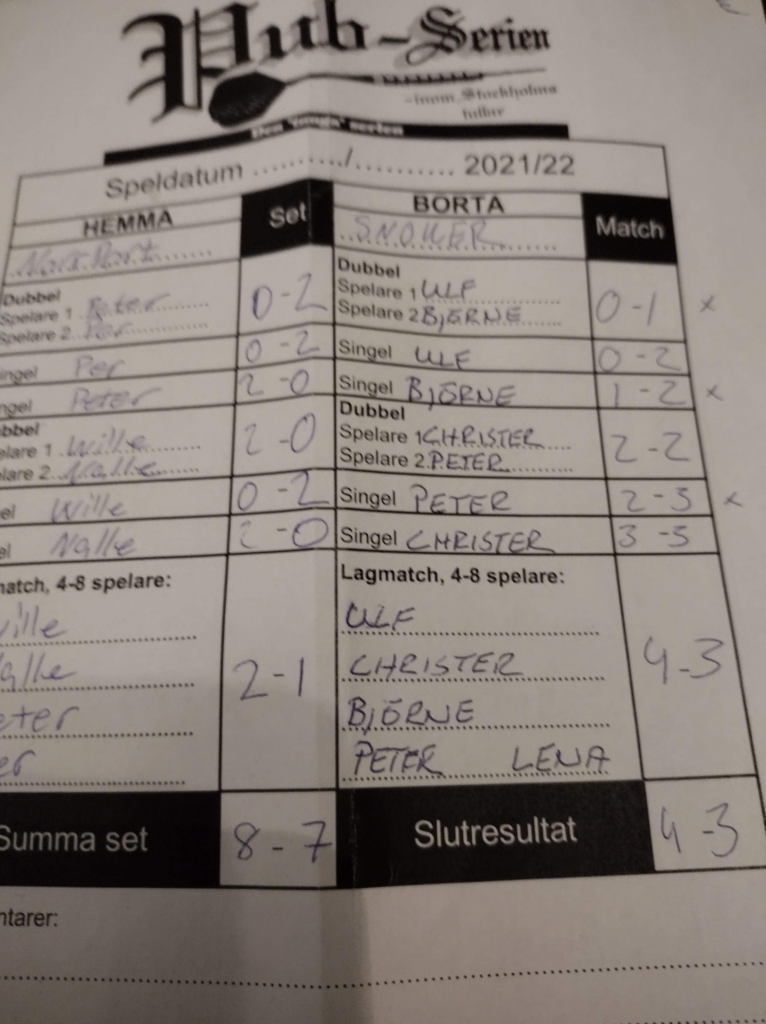 Pub-Serien
-inom Stockholms
tullar
Den "tunga" serien
Speldatum ........./.......... 2021/22
HEMMA Set BORTA Match
SNOKER
Dubbel Dubbel
Spelare 1 Peter 0-2 Spelare 1 ULF 0-1 x
Spelare 2 Per Spelare 2 BJÖRNE
ingel Per 0-2 Singel ULF 0-2
ngel Peter 2-0 Singel BJÖRNE 1-2 x
bbel Dubbel
elare 1 Wille 2-0 Spelare 1 CHRISTER 2-2
elare 2 Nalle Spelare 2 PETER
el Wille 0-2 Singel PETER 2-3 x
el Nalle 2-0 Singel CHRISTER 3-3
match, 4-8 spelare: Lagmatch, 4-8 spelare:
ille ULF
alle 2-1 CHRISTER 4-3
eter BJÖRNE
er PETER LENA
Summa set 8-7 Slutresultat 4-3
ntarer: